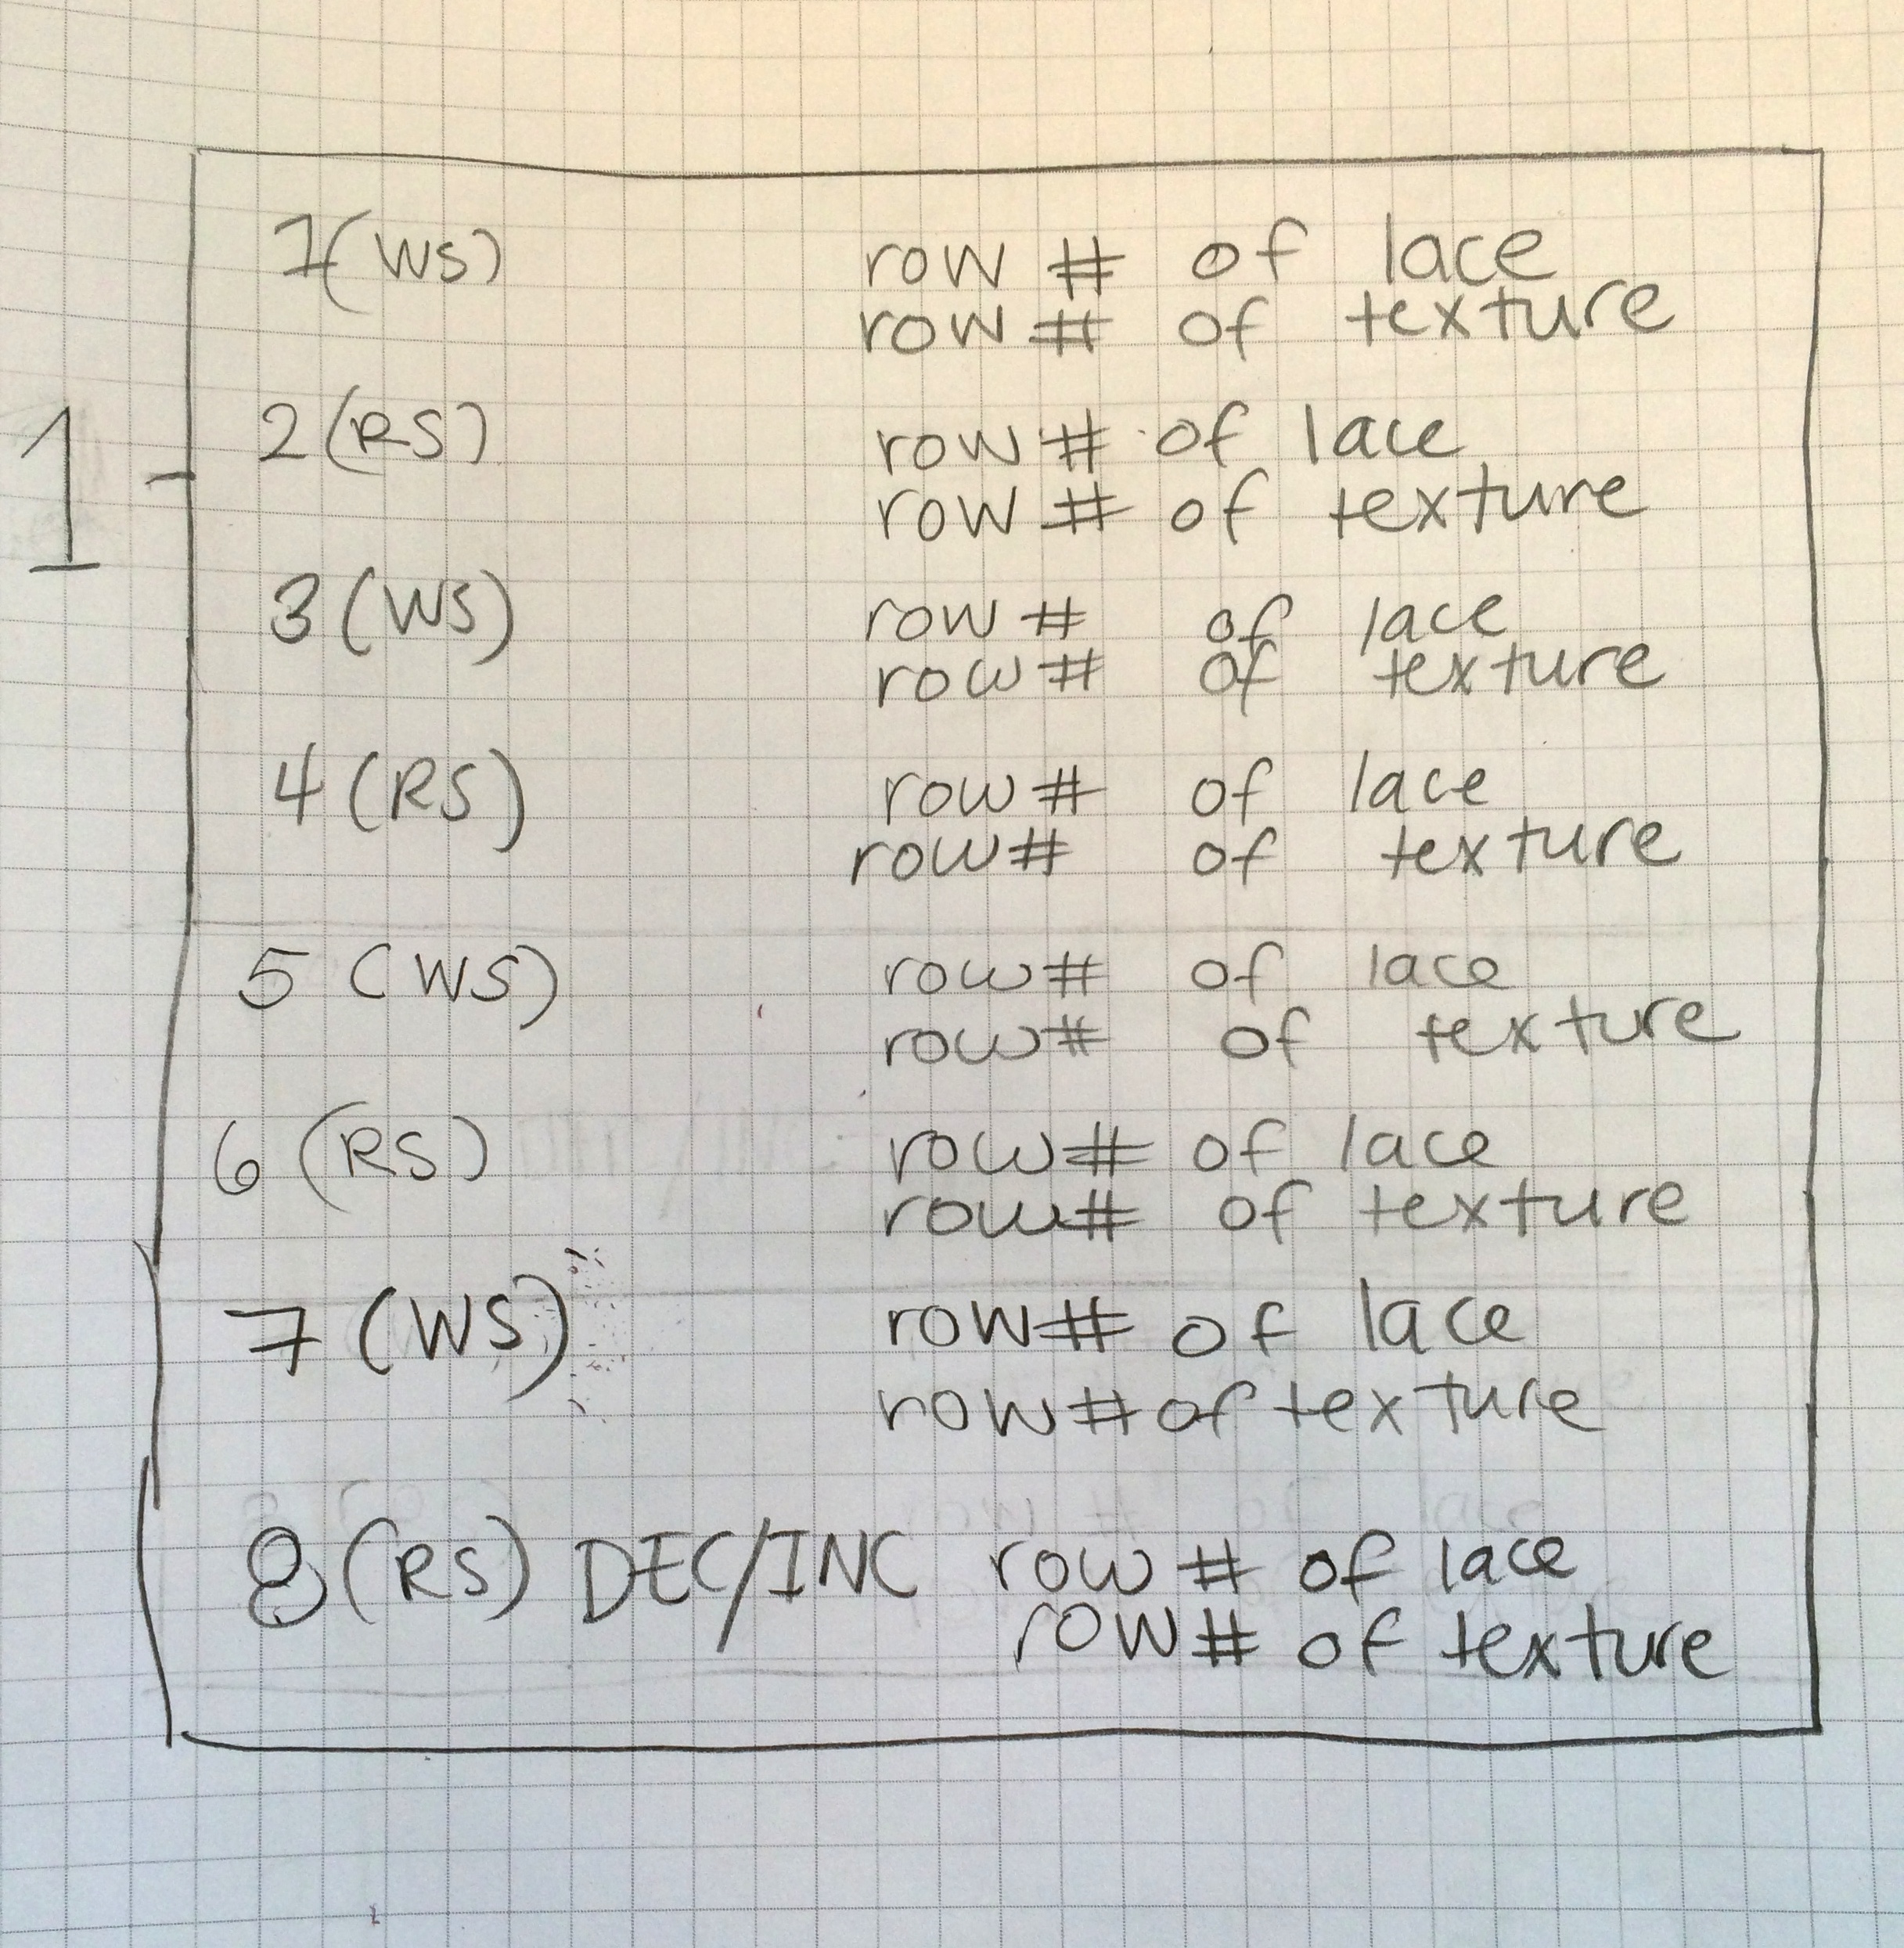 1
1 (WS) row # of lace
row # of texture
2 (RS) row # of lace
row # of texture
3 (WS) row # of lace
row # of texture
4 (RS) row # of lace
row # of texture
5 (WS) row # of lace
row # of texture
6 (RS) row # of lace
row # of texture
7 (WS) row # of lace
row # of texture
8 (RS) DEC/INC row # of lace
row # of texture